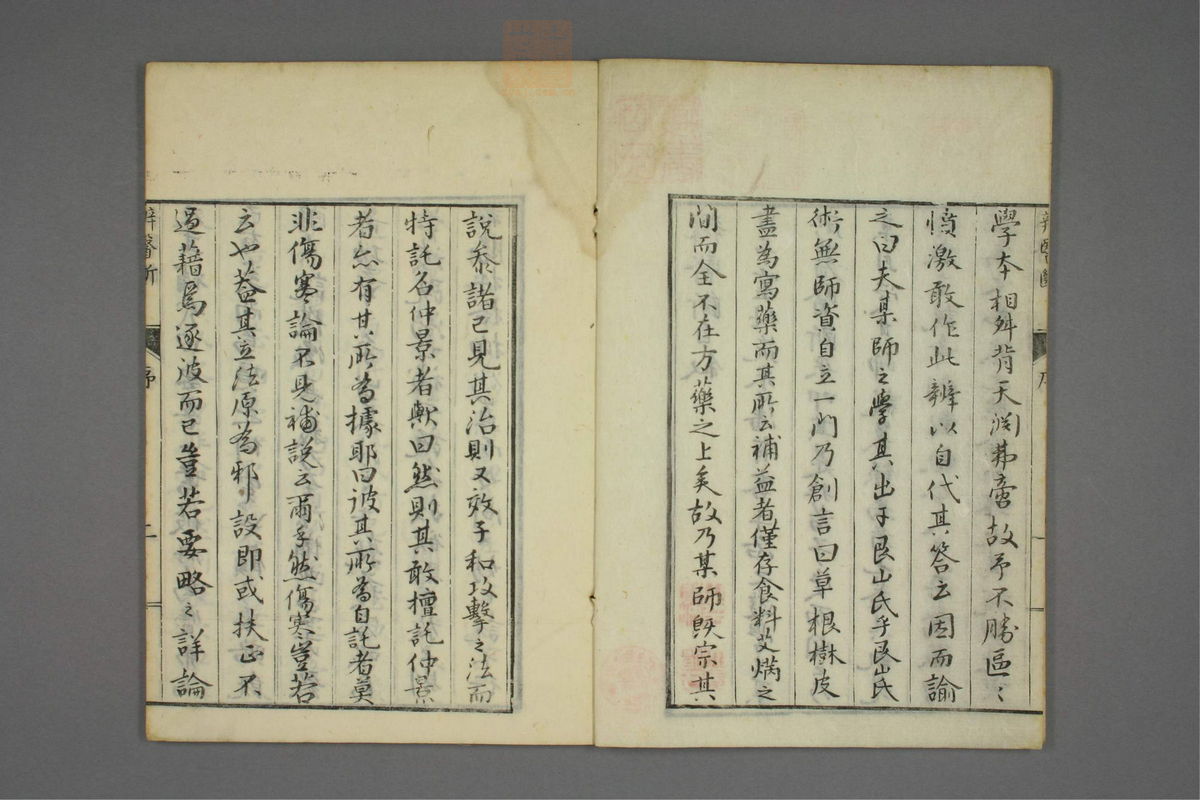 學本相舛背天淵弗啻故予不勝區〻
憤激敢作此辨以自代其答云因而諭
之曰夫某師之學其出于艮山氏乎艮山氏
術無師資自立一門乃創言曰草根樹皮
盡為寫藥而其所云補益者僅存食料艾焫之
間而全不在方藥之上矣故乃某師既宗其
辨醫斷
序
一
說黍諸已見其治則又效子和攻擊之法而
特託名仲景者歟曰然則其敢擅託仲景
者亦有其所為據耶曰彼其所為自託者莫
非傷寒論不見補說云爾乎然傷寒豈若
云也蓋其立法原為邪設即或扶正不
過藉焉逐波而已豈若要略之詳論
辨醫斷
序
二